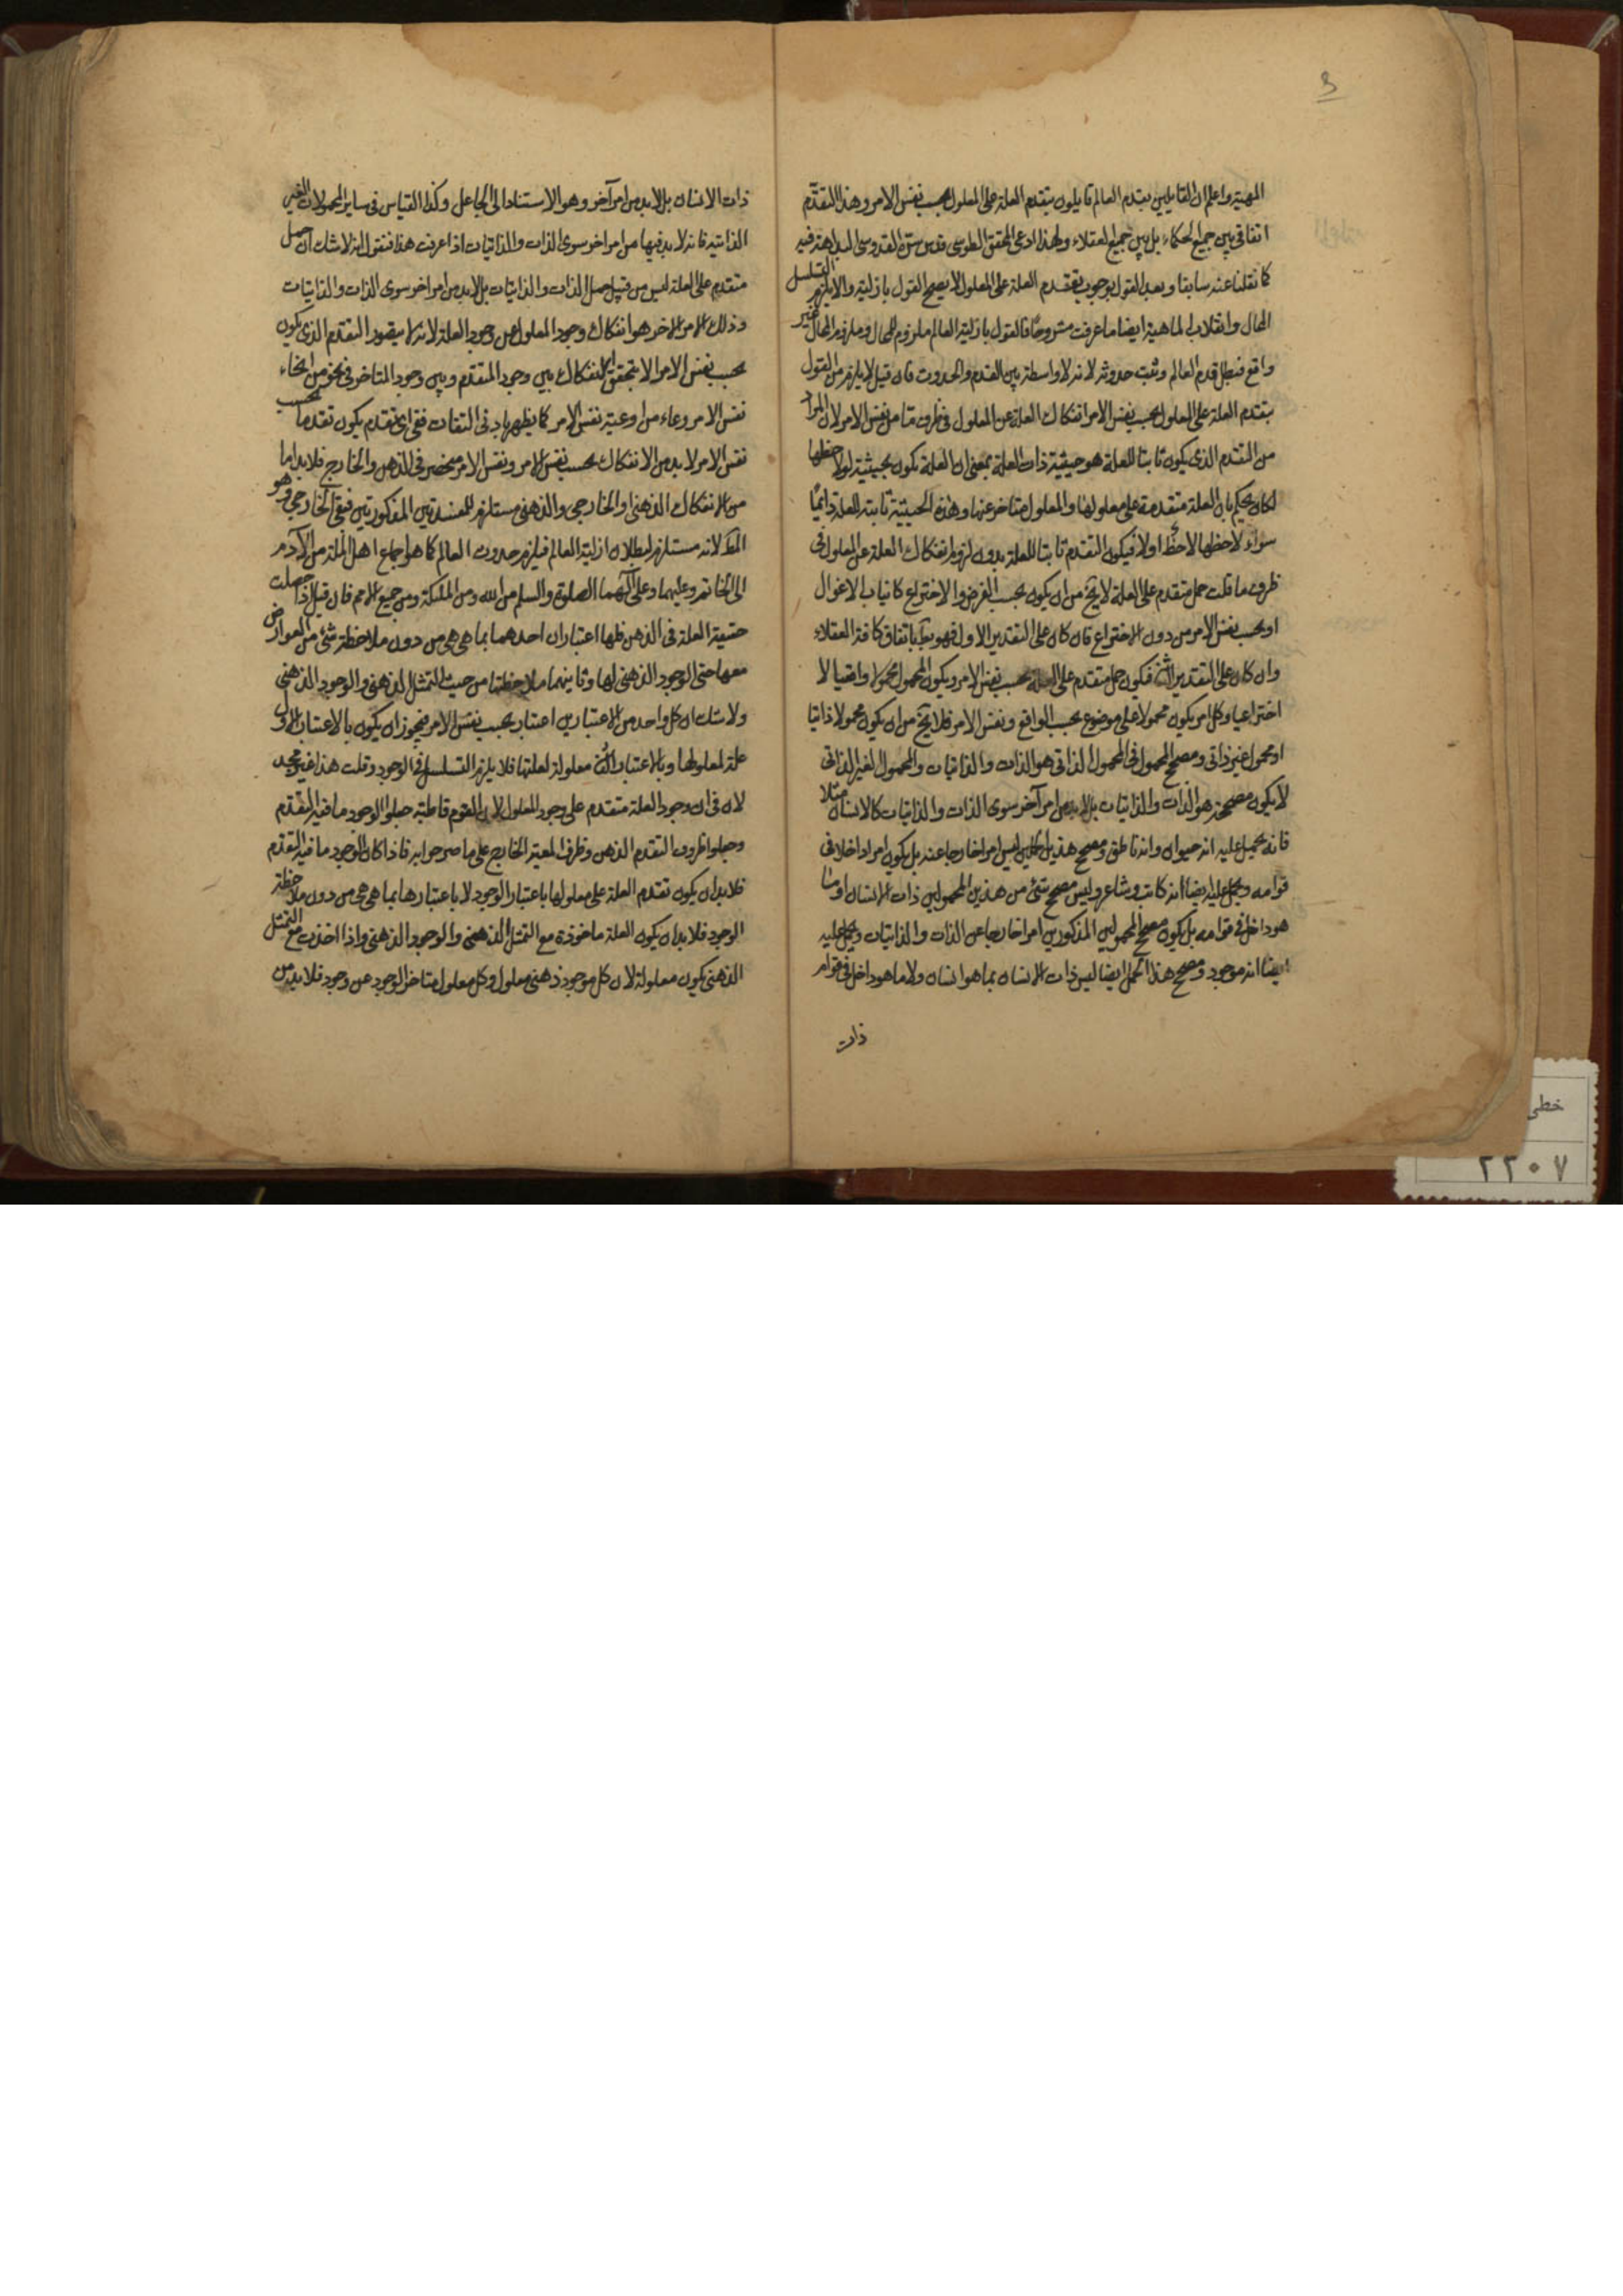 المهية واعلم ان القايلين بقدم العالم قايلون بتقدم العلة على المعلول بحسب نفس الامر وهذا التقدم
اتفاقي بين جميع الحكماء بل بين جميع العقلاء ولهذا ادعى المحقق الطوسي قدس سره القدوسي البداهة فيه
كما نقلنا عنه سابقا وبعد القول بوجوب تقدم العلة على المعلول لا يصح القول بازلية والا يلزم التسلسل
المحال وانقلاب الماهية ايضا ما عرفت مشروحا فالقول بازلية العالم ملزوم للمحال وملزوم المحال غير
واقع فبطل قدم العالم وثبت حدوثه لانه لا واسطة بين القدم والحدوث فان قيل لا يلزم من القول
بتقدم العلة على المعلول بحسب نفس الامر انفكاك العلة عن المعلول في ظرف ما من نفس الامر لان المراد
من التقدم الذي يكون ثابتا للعلة هو حيثية ذات العلة بمعنى ان العلة تكون بحيثية لو لاحظها
لكان يحكم بان العلة متقدمة على معلولها والمعلول متاخر عنها وهذه الحيثية ثابتة للعلة دائما
سواء لاحظها لاحظ اولا فيكون التقدم ثابتا للعلة بدون لزوم انفكاك العلة عن المعلول في
ظرف ما قلت حمل متقدم على العلة لا يخ من ان يكون بحسب الفرض والاختراع كانياب الاغوال
او بحسب نفس الامر من دون الاختراع فان كان على التقدير الاول فهو بط باتفاق كافة العقلاء
وان كان على التقدير الثاني فيكون حمل متقدم على العلة بحسب نفس الامر ويكون المحمول محمولا واقعيا لا
اختراعيا وكل امر يكون محمولا على موضوع بحسب الواقع ونفس الامر فلا يخ من ان يكون محمولا ذاتيا
او محمول غير ذاتي ومصحح المحمول في المحمول الذاتي هو الذات والذاتيات والمحمول الغير الذاتي
لا يكون مصححه هو الذات والذاتيات بل لابد من امر آخر سوى الذات والذاتيات كالانسان مثلا
فانه يحمل عليه انه حيوان وانه ناطق ومصحح هذين الحملين ليس امرا خارجا عنه بل يكون امرا داخلا في
قوامه ويحمل عليه ايضا انه كاتب وشاعر وليس مصحح شئ من هذين المحمولين ذات الانسان او ما
هو داخل في قوامه بل يكون مصحح المحمولين المذكورين امرا خارجا عن الذات والذاتيات ويحمل عليه
ايضا انه موجود ومصحح هذا الحمل ايضا ليس ذات الانسان بما هو انسان ولا ما هو داخل في قوام
ذات
ذات الانسان بل لابد من امر آخر وهو الاستناد الى الجاعل وكذا القياس في ساير المحمولات الغير
الذاتية فانه لابد فيها من امر اخر سوى الذات والذاتيات اذا عرفت هذا فنقول انه لا شك ان حمل
متقدم على العلة ليس من قبيل حمل الذات والذاتيات بل لابد من امر اخر سوى الذات والذاتيات
وذلك الامر الاخر هو انفكاك وجود المعلول عن وجود العلة لانه لا يتصور التقدم الذي يكون
بحسب نفس الامر الا بتحقق الانفكاك بين وجود المتقدم وبين وجود المتاخر في نحو من انحاء
نفس الامر وعاء من اوعية نفس الامر كما يظهر بادنى التفات ففي اي تقدم يكون تقدما بحسب
نفس الامر لابد من الانفكاك بحسب نفس الامر ونفس الامر منحصر في الذهن والخارج فلابد اما
من الانفكاك الذهني او الخارجي والذهني مستلزم للمفسدتين المذكورتين فبقى الخارجي وهو
المط لانه مستلزم لبطلان ازلية العالم فيلزم حدوث العالم كما هو اجماع اهل الملة من الآدم
الى الخاتم وعليهما وعلى آلهما الصلوة والسلم من الله ومن الملئكة ومن جميع الامم فان قيل اذا حصلت
حقيقة العلة في الذهن فلها اعتباران احدهما بما هي هي من دون ملاحظة شئ من العوارض
معها حتى الوجود الذهني لها وثانيهما ملاحظتها من حيث التمثل الذهني والوجود الذهني
ولا شك ان كل واحد من الاعتبارين اعتبار بحسب نفس الامر فيجوز ان يكون بالاعتبار الاول
علة لمعلولها وبالاعتبار الثاني معلولة لعلتها فلا يلزم التسلسل في الوجود قلت هذا غير مجد
لان في ان وجود العلة متقدم على وجود المعلول لان القوم قاطبة جعلوا الوجود ما فيه التقدم
وجعلوا ظرف التقدم الذهن وظرف المعية الخارج على ما صرحوا به فاذا كان الوجود ما فيه التقدم
فلابد ان يكون تقدم العلة على معلولها باعتبار الوجود لا باعتبارها بما هي هي من دون ملاحظة
الوجود فلابد ان يكون العلة ماخوذة مع التمثل الذهني والوجود الذهني واذا اخذت مع التمثل
الذهني يكون معلولة لان كل موجود ذهني معلول وكل معلول متاخر الوجود عن وجود فلابد من
خطی
٢٢٠٧